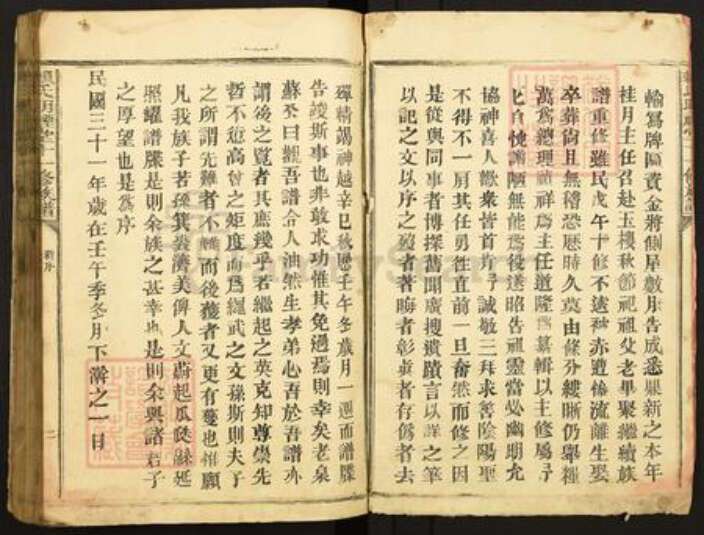 輸寫牌匾資金將側屋數月告成悉鼎新之本年
桂月主任召赴玉樓秋節祀祖父老畢聚繼續族
譜重修雖民戊午十修不遠秋赤遭慘流離生娶
卒葬尚且無稽恐歷時久莫由條分縷晰仍舉
萬為總理 祥為主任道隆 纂輯以主修屬予
自愧譾陋無能為後遂昭告祖靈當必幽明允
協神喜人歡眾皆首肯予誠敬三拜求善陰陽聖
不得不一肩其任勇往直前一旦奮然而修之因
是從與同事者博探舊聞廣搜遺蹟言以詳之筆
以記之文以序之 者著晦者彰 者存偽者去
殫精竭神越辛巳秋歷壬午冬歲月一週而譜牒
告竣斯事也非敢求功惟其免過焉則幸矣老泉
蘇公曰觀吾譜令人油然生孝弟心吾於吾譜亦
謂後之覽者其庶幾乎若繼起之英克知尊崇先
哲不愆高曾之矩度而為繩武之文孫斯則夫子
之所謂先難者不 而後獲者又更有獲也惟願
凡我族子若孫箕裘濟美俾人文蔚起瓜瓞綿延
照耀譜牒是則余族之甚幸也是則余與諸君子
之厚望也是為序
民國三十一年歲在壬午季冬月下澣之一日